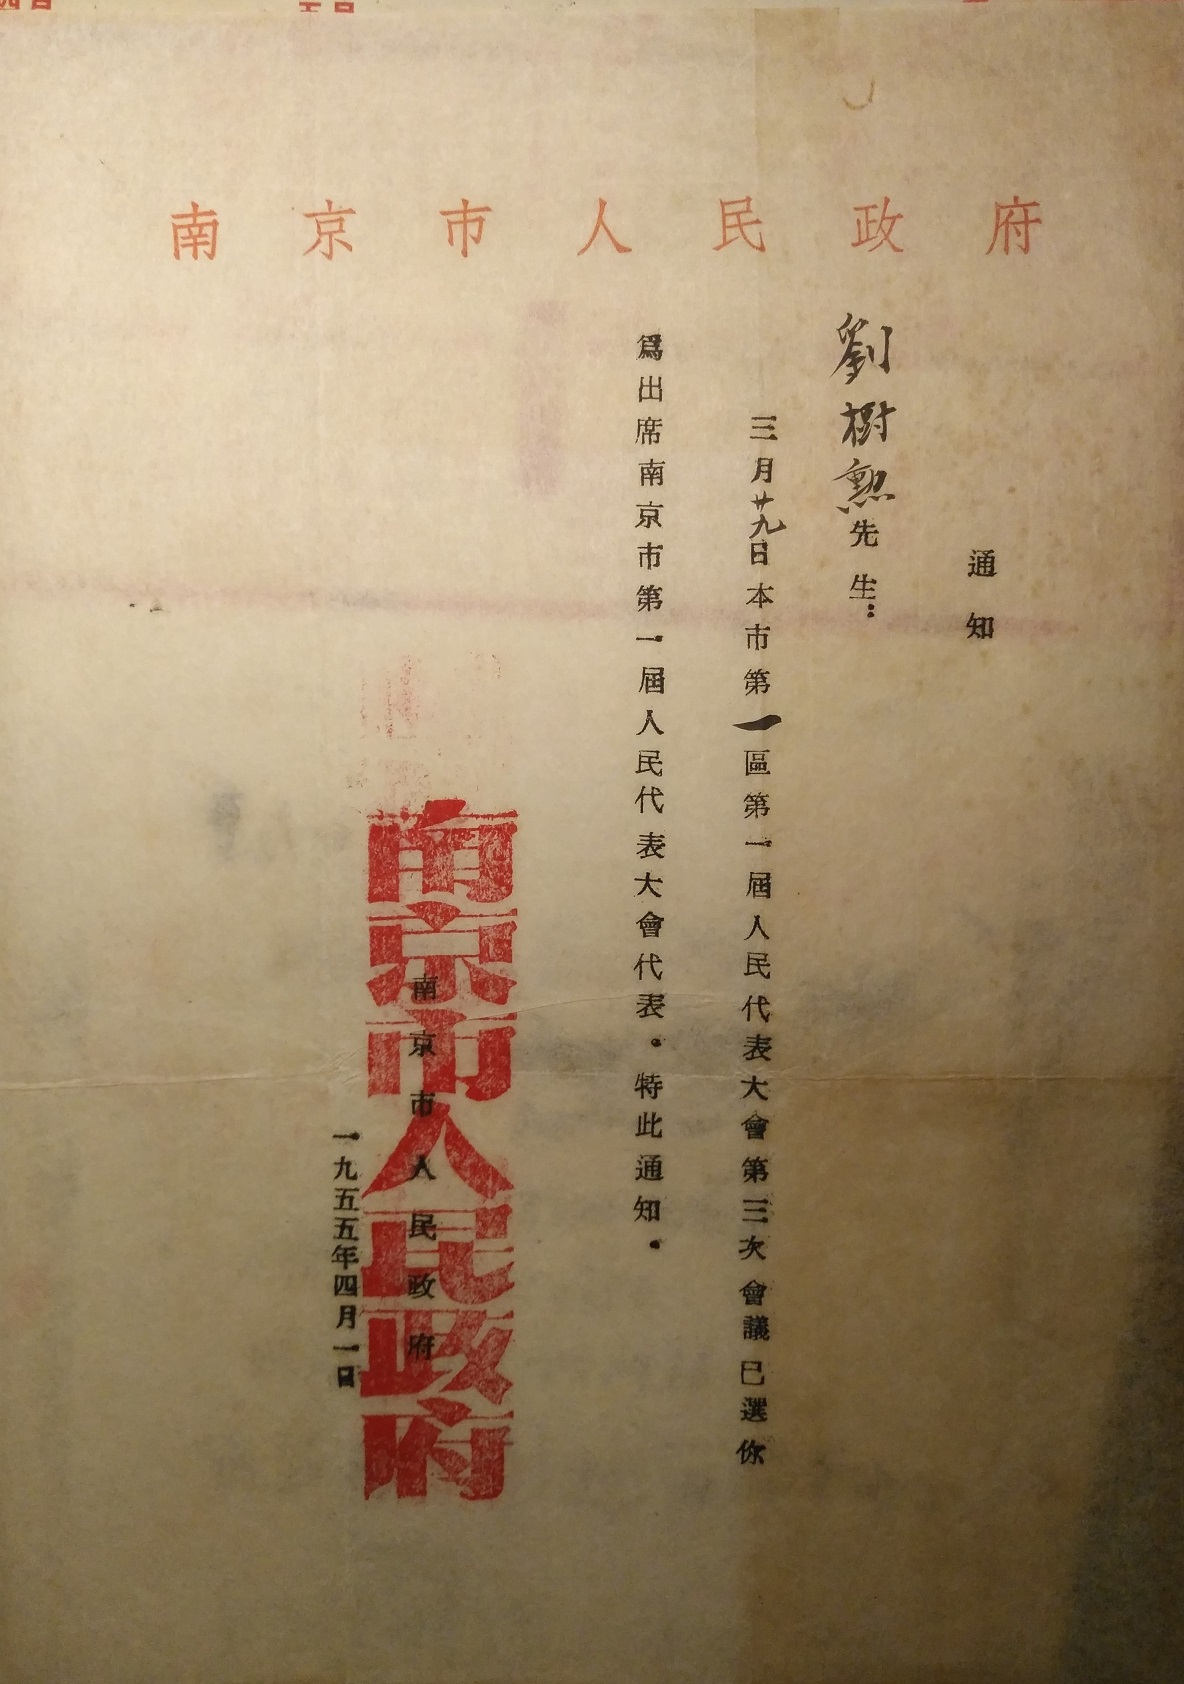 南京市人民政府
通知
劉樹勲先生：
三月廿九日本市第一區第一屆人民代表大會第三次會議已選你
爲出席南京市第一屆人民代表大會代表。特此通知。
南京市人民政府
南京市人民政府
一九五五年四月一日